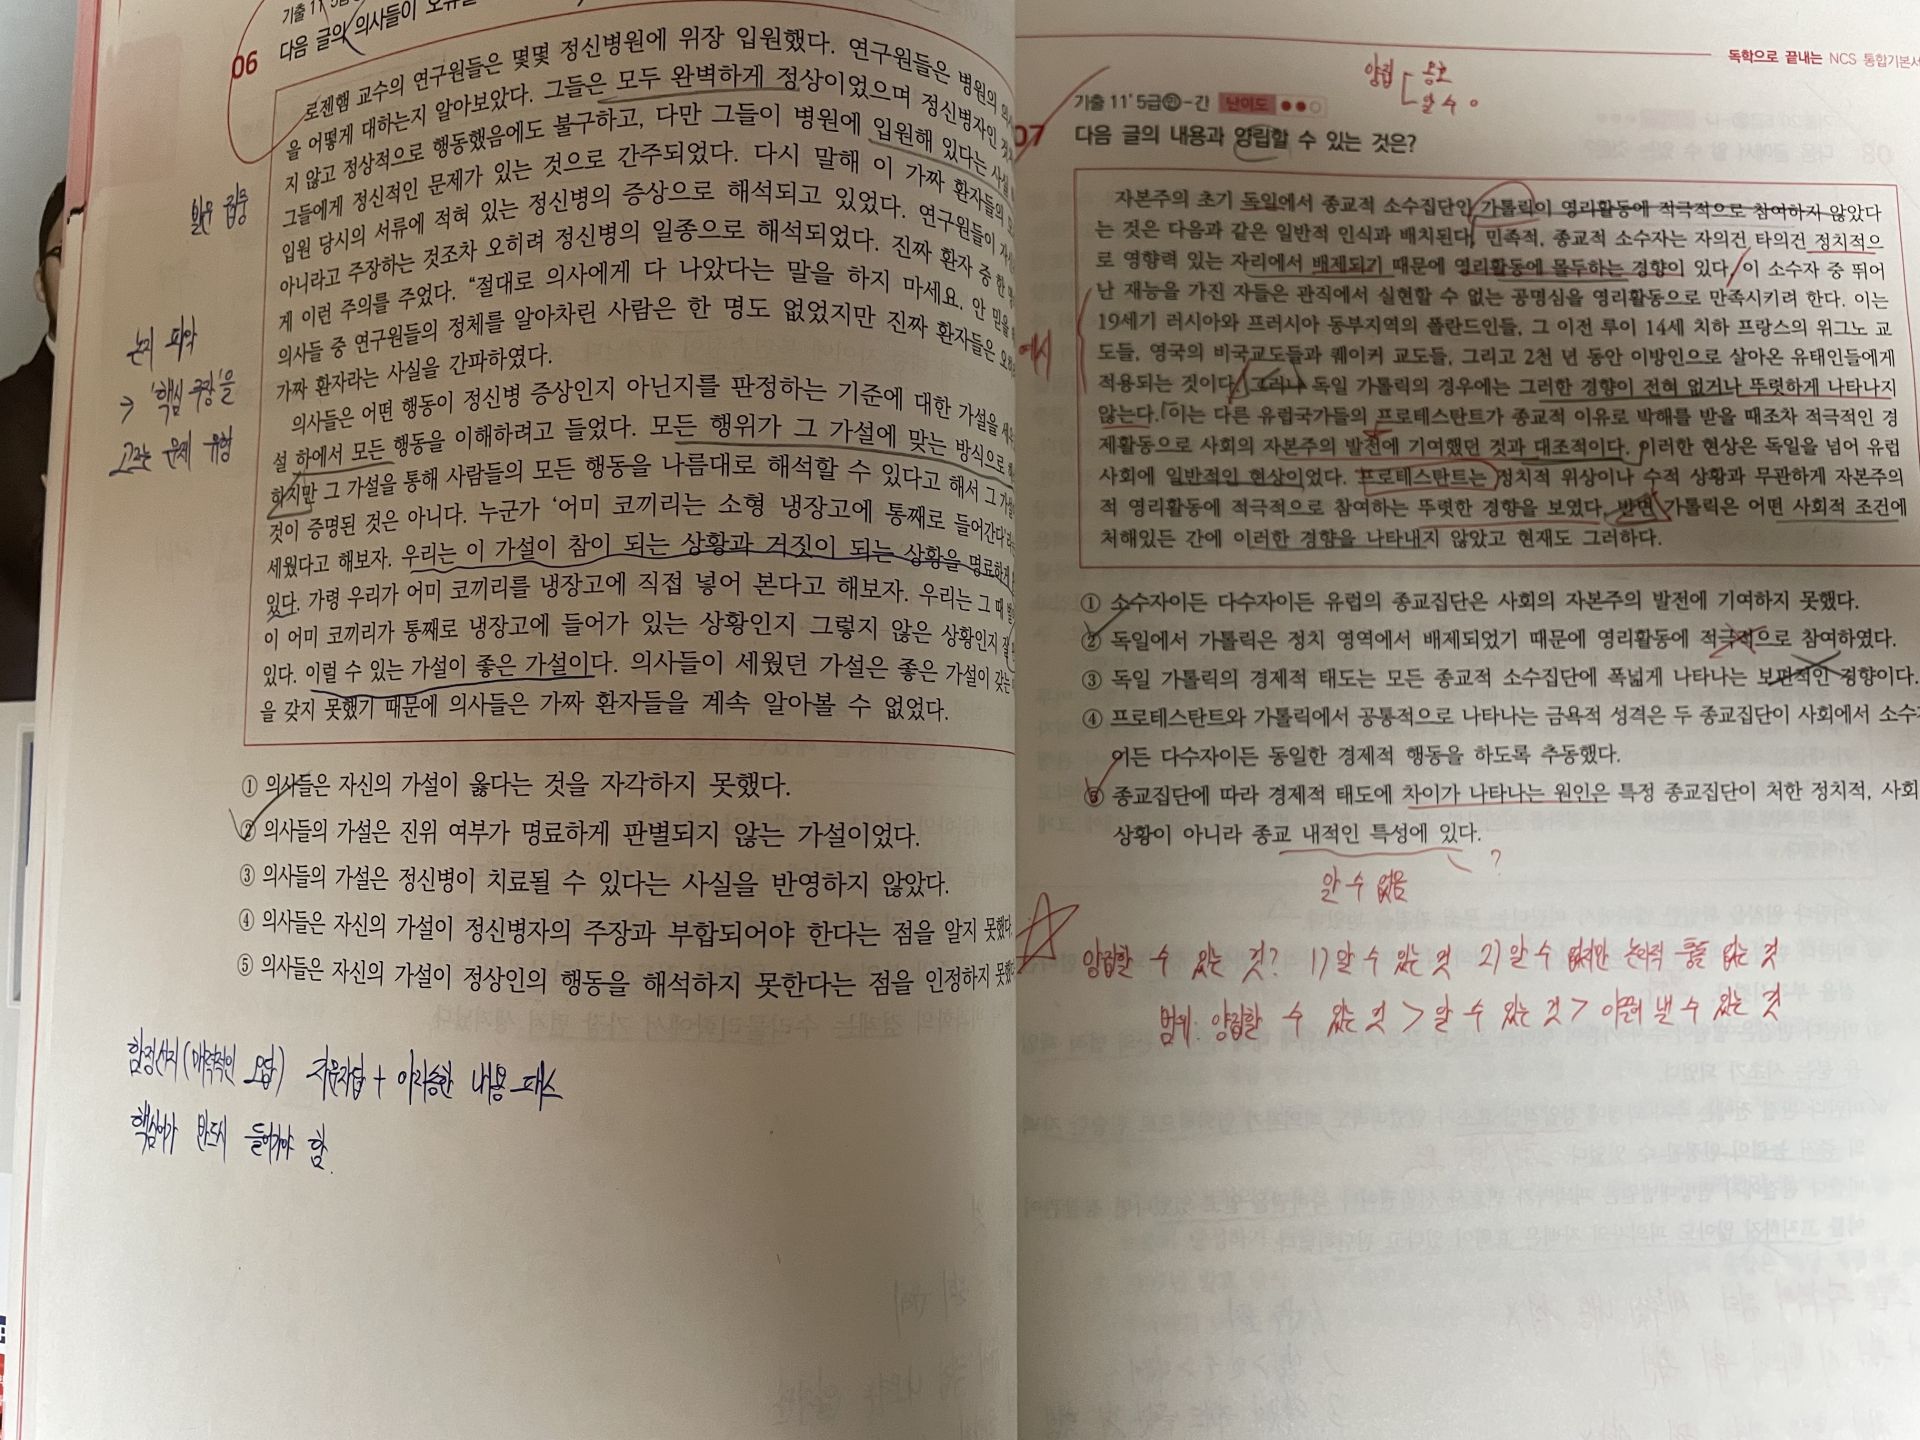 기출 11' 5급
06
다음 글의 의사들이
로젠햄 교수의 연구원들은 몇몇 정신병원에 위장 입원했다. 연구원들은 병원의
을 어떻게 대하는지 알아보았다. 그들은 모두 완벽하게 정상이었으며 정신병자인
지 않고 정상적으로 행동했음에도 불구하고, 다만 그들이 병원에 입원해 있다는 사실
그들에게 정신적인 문제가 있는 것으로 간주되었다. 다시 말해 이 가짜 환자들의
입원 당시의 서류에 적혀 있는 정신병의 증상으로 해석되고 있었다. 연구원들이
아니라고 주장하는 것조차 오히려 정신병의 일종으로 해석되었다. 진짜 환자 중 한
게 이런 주의를 주었다. “절대로 의사에게 다 나았다는 말을 하지 마세요. 안 믿을
의사들 중 연구원들의 정체를 알아차린 사람은 한 명도 없었지만 진짜 환자들은
가짜 환자라는 사실을 간파하였다.
의사들은 어떤 행동이 정신병 증상인지 아닌지를 판정하는 기준에 대한 가설을
설 하에서 모든 행동을 이해하려고 들었다. 모든 행위가 그 가설에 맞는 방식으로
하지만 그 가설을 통해 사람들의 모든 행동을 나름대로 해석할 수 있다고 해서 그
것이 증명된 것은 아니다. 누군가 ‘어미 코끼리는 소형 냉장고에 통째로 들어간다’
세웠다고 해보자. 우리는 이 가설이 참이 되는 상황과 거짓이 되는 상황을 명료하게
있다. 가령 우리가 어미 코끼리를 냉장고에 직접 넣어 본다고 해보자. 우리는 그 때
이 어미 코끼리가 통째로 냉장고에 들어가 있는 상황인지 그렇지 않은 상황인지
있다. 이럴 수 있는 가설이 좋은 가설이다. 의사들이 세웠던 가설은 좋은 가설이 갖는
을 갖지 못했기 때문에 의사들은 가짜 환자들을 계속 알아볼 수 없었다.
① 의사들은 자신의 가설이 옳다는 것을 자각하지 못했다.
② 의사들의 가설은 진위 여부가 명료하게 판별되지 않는 가설이었다.
③ 의사들의 가설은 정신병이 치료될 수 있다는 사실을 반영하지 않았다.
④ 의사들은 자신의 가설이 정신병자의 주장과 부합되어야 한다는 점을 알지 못했다.
⑤ 의사들은 자신의 가설이 정상인의 행동을 해석하지 못한다는 점을 인정하지
논지 파악
→ '핵심 주장'을
고르는 문제 유형
함정선지(매력적인 오답) 지문자답 + 아리송한 내용 패스
핵심어가 반드시 들어가야 함.
독학으로 끝내는 NCS 통합기본서
양립
알 수 o
기출 11' 5급㉯-간 난이도 ●●○
07
다음 글의 내용과 양립할 수 있는 것은?
자본주의 초기 독일에서 종교적 소수집단인 가톨릭이 영리활동에 적극적으로 참여하지 않았다
는 것은 다음과 같은 일반적 인식과 배치된다. 민족적, 종교적 소수자는 자의건 타의건 정치적으
로 영향력 있는 자리에서 배제되기 때문에 영리활동에 몰두하는 경향이 있다. 이 소수자 중 뛰어
난 재능을 가진 자들은 관직에서 실현할 수 없는 공명심을 영리활동으로 만족시키려 한다. 이는
19세기 러시아와 프러시아 동부지역의 폴란드인들, 그 이전 루이 14세 치하 프랑스의 위그노 교
도들, 영국의 비국교도들과 퀘이커 교도들, 그리고 2천 년 동안 이방인으로 살아온 유태인들에게
적용되는 것이다. 그러나 독일 가톨릭의 경우에는 그러한 경향이 전혀 없거나 뚜렷하게 나타나지
않는다. 이는 다른 유럽국가들의 프로테스탄트가 종교적 이유로 박해를 받을 때조차 적극적인 경
제활동으로 사회의 자본주의 발전에 기여했던 것과 대조적이다. 이러한 현상은 독일을 넘어 유럽
사회에 일반적인 현상이었다. 프로테스탄트는 정치적 위상이나 수적 상황과 무관하게 자본주의
적 영리활동에 적극적으로 참여하는 뚜렷한 경향을 보였다. 반면 가톨릭은 어떤 사회적 조건에
처해있든 간에 이러한 경향을 나타내지 않았고 현재도 그러하다.
예시
① 소수자이든 다수자이든 유럽의 종교집단은 사회의 자본주의 발전에 기여하지 못했다.
② 독일에서 가톨릭은 정치 영역에서 배제되었기 때문에 영리활동에 적극적으로 참여하였다.
③ 독일 가톨릭의 경제적 태도는 모든 종교적 소수집단에 폭넓게 나타나는 보편적인 경향이다.
④ 프로테스탄트와 가톨릭에서 공통적으로 나타나는 금욕적 성격은 두 종교집단이 사회에서 소수
이든 다수자이든 동일한 경제적 행동을 하도록 추동했다.
⑤ 종교집단에 따라 경제적 태도에 차이가 나타나는 원인은 특정 종교집단이 처한 정치적, 사회
상황이 아니라 종교 내적인 특성에 있다.
?
알 수 없음
양립할 수 있는 것? 1) 알 수 있는 것 2) 알 수 없지만 논리적 틀 없는 것
범위: 양립할 수 있는 것 > 알 수 있는 것 > 이끌어 낼 수 있는 것